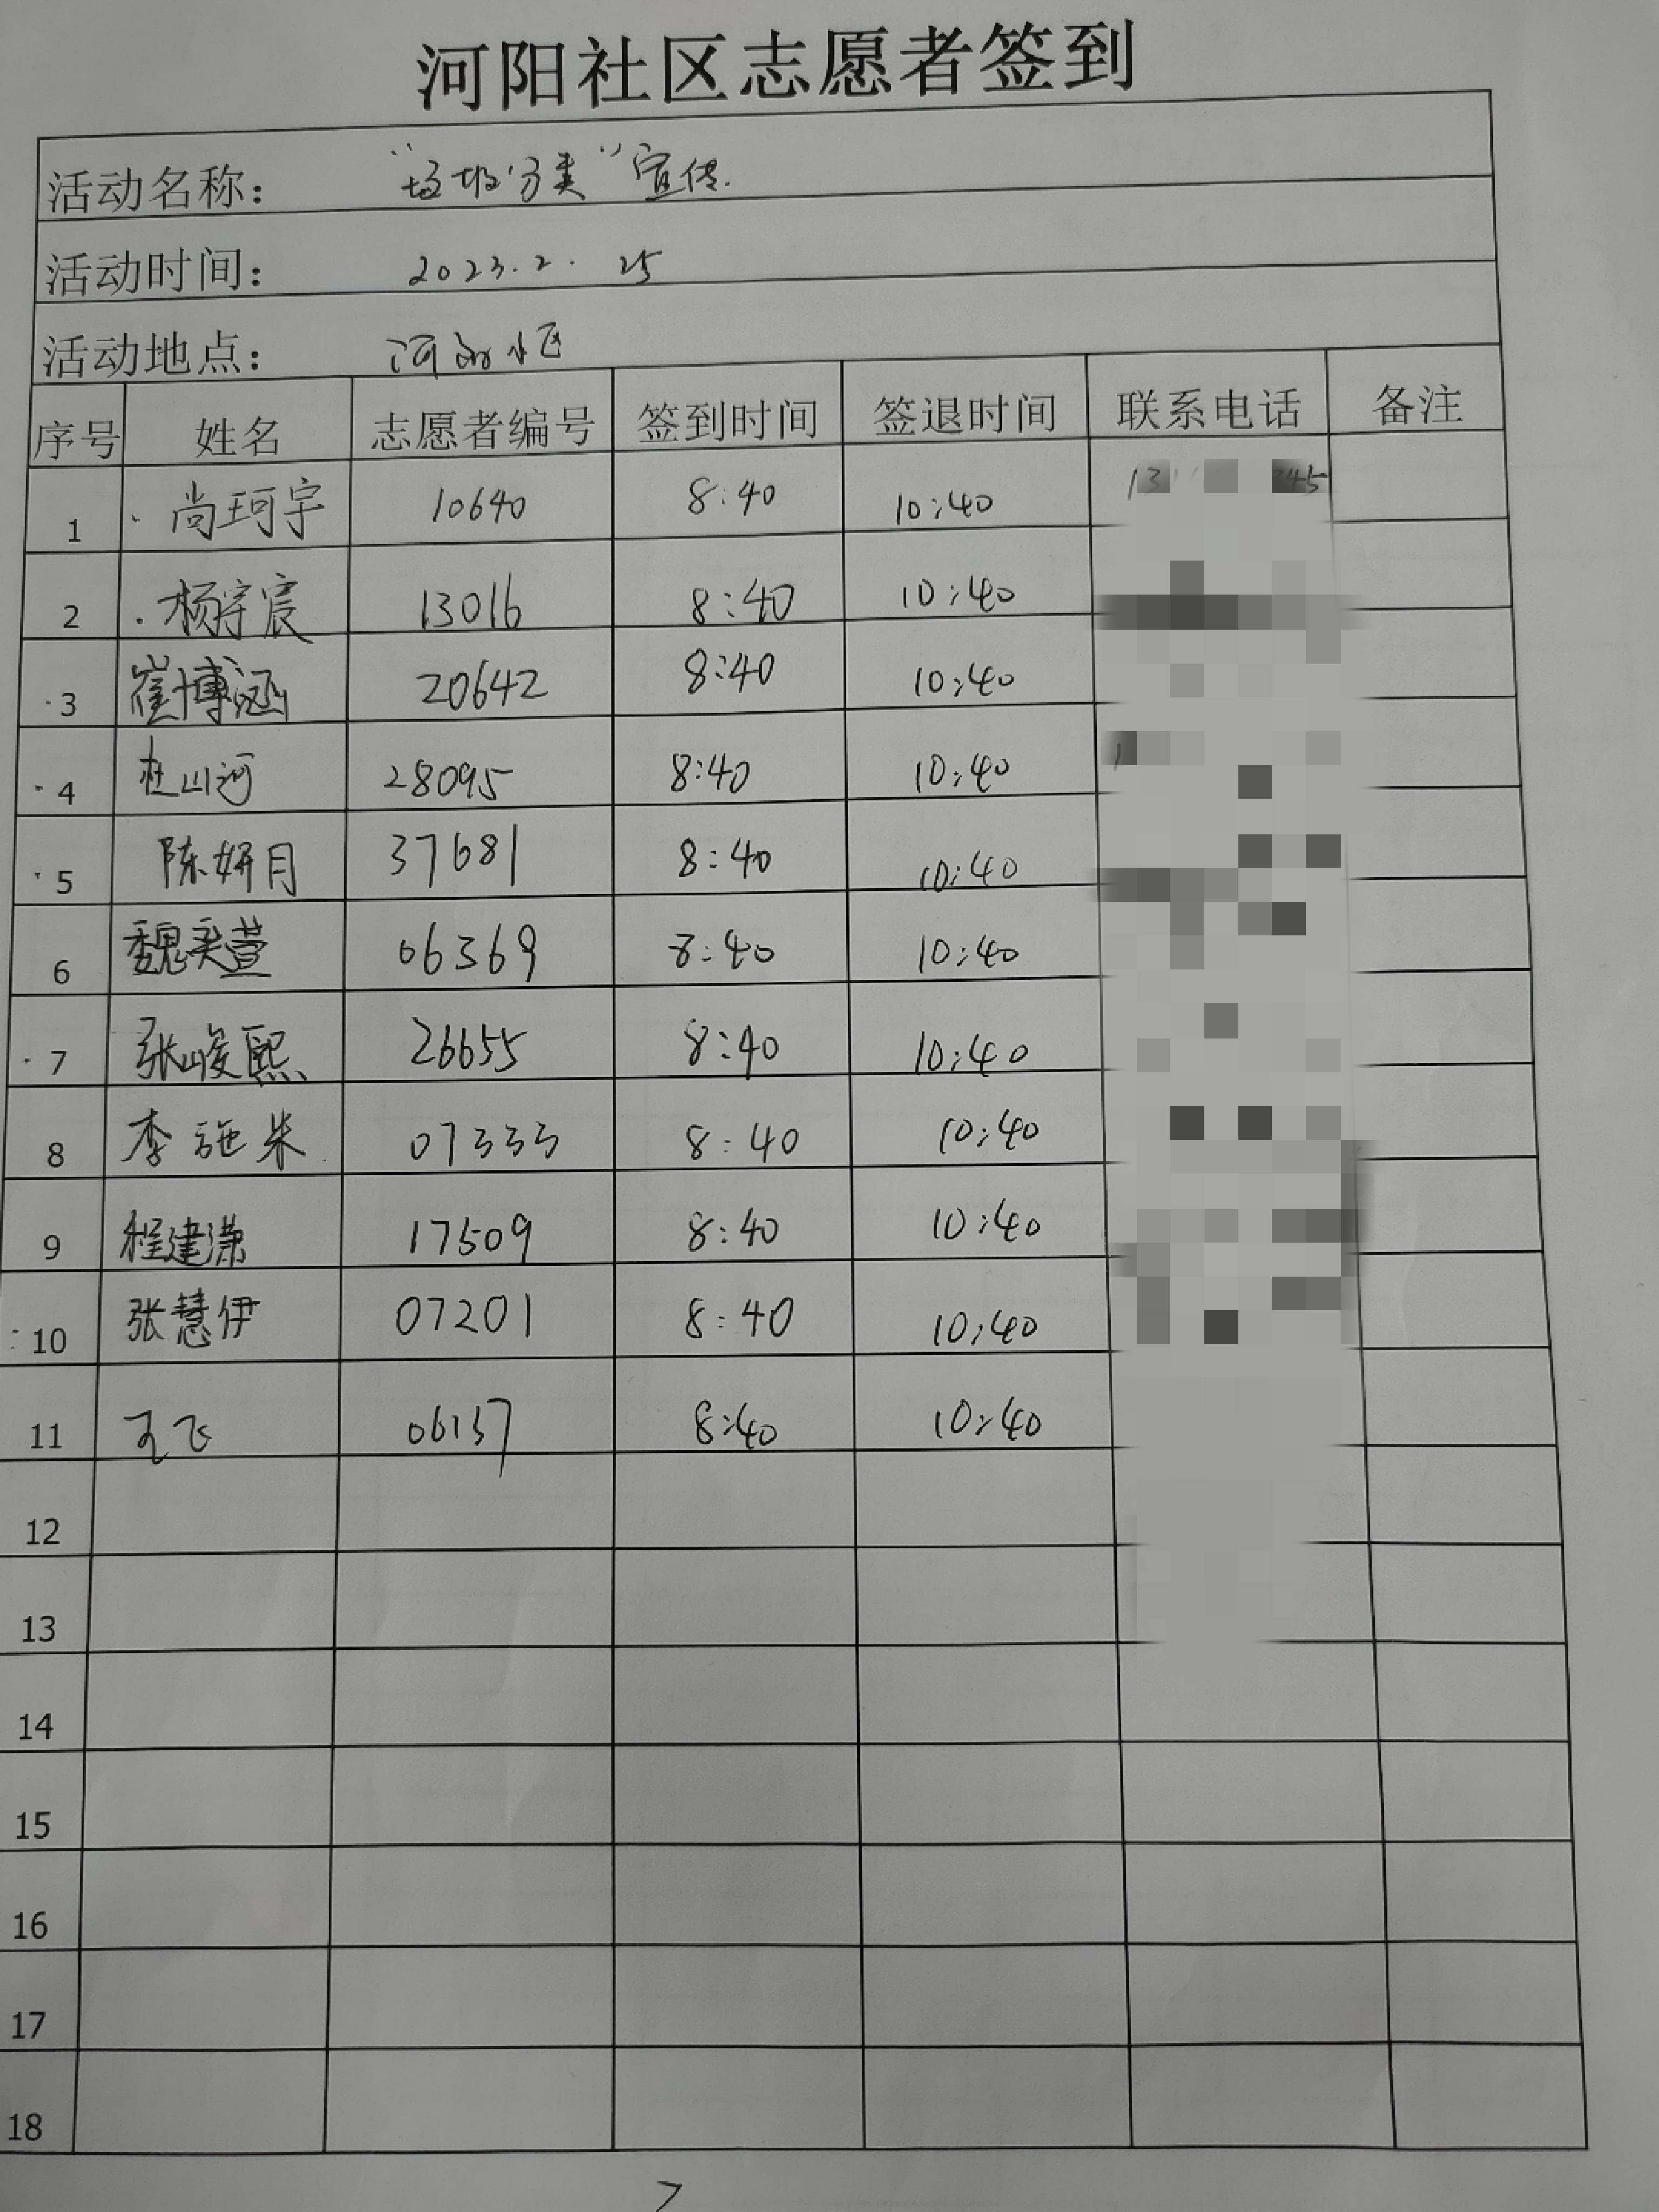 河阳社区志愿者签到
活动名称： “垃圾分类”宣传.
活动时间： 2023.2. 25
活动地点： 河阳小区
序号 姓名 志愿者编号 签到时间 签退时间 联系电话 备注
1 尚珂宇 10640 8:40 10:40 13 345
2 杨宇宸 13016 8:40 10:40
3 崔博涵 20642 8:40 10:40
4 杜山河 28095 8:40 10:40
5 陈妍月 37681 8:40 10:40
6 魏奕萱 06369 8:40 10:40
7 张峻熙 26655 8:40 10:40
8 李 米 07333 8:40 10:40
9 程建潇 17509 8:40 10:40
10 张慧伊 07201 8:40 10:40
11 孔飞 06137 8:40 10:40
12
13
14
15
16
17
18